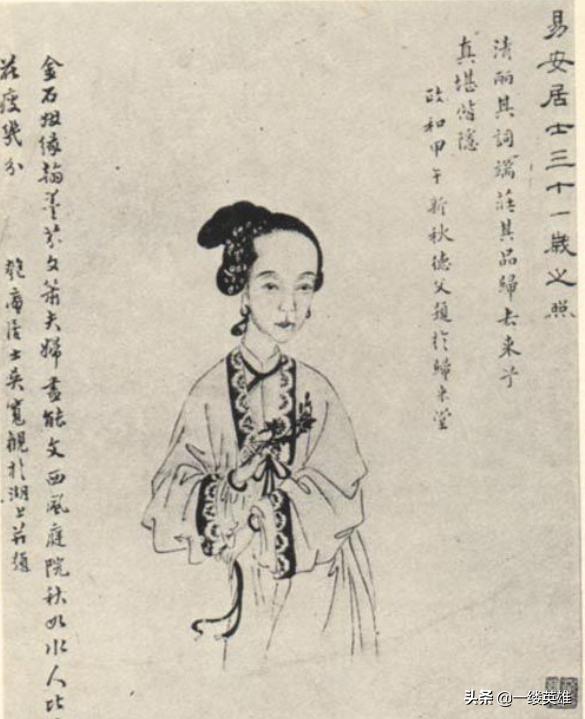 易安居士三十一歲之照
清麗其詞端莊其品歸去來兮
真堪偕隱
政和甲午新秋德父題於歸來堂
金石姻緣翰墨芬文簫夫婦盡能文西風庭院秋如水人比
花瘦幾分
匏庵居士吳寬觀於湖上并題
头条 @一缕英雄